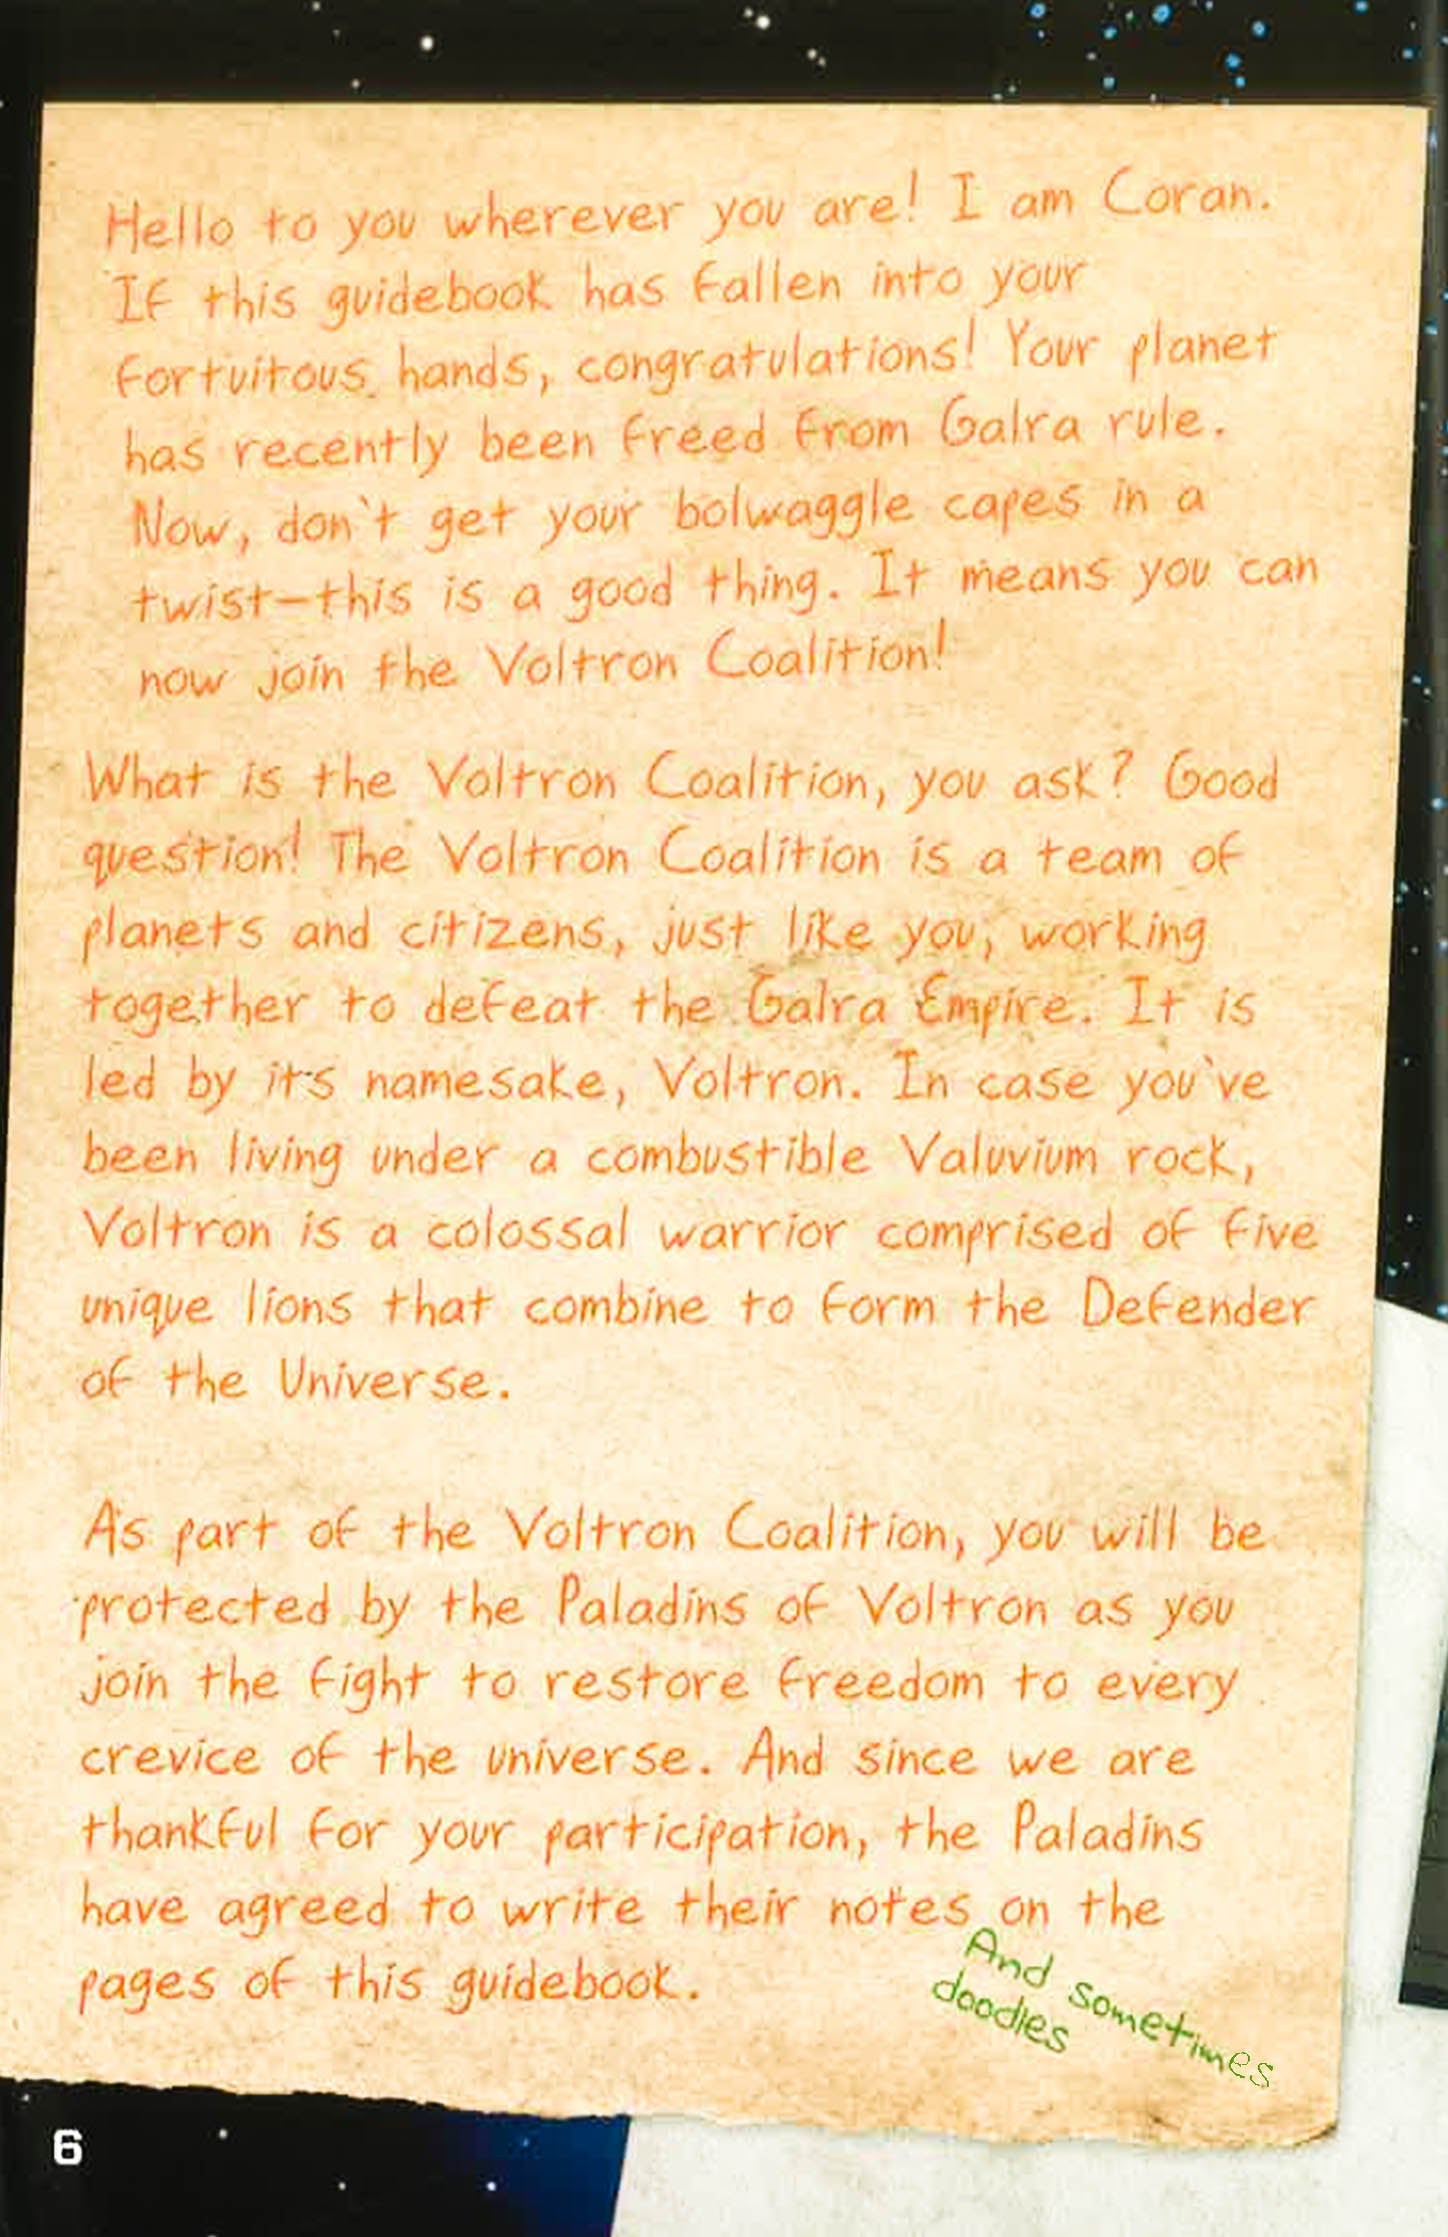 Hello to you wherever you are! I am Coran.
If this guidebook has fallen into your
fortuitous hands, congratulations! Your planet
has recently been freed from Galra rule.
Now, don't get your bolwaggle capes in a
twist—this is a good thing. It means you can
now join the Voltron Coalition!
What is the Voltron Coalition, you ask? Good
question! The Voltron Coalition is a team of
planets and citizens, just like you, working
together to defeat the Galra Empire. It is
led by its namesake, Voltron. In case you've
been living under a combustible Valuvium rock,
Voltron is a colossal warrior comprised of five
unique lions that combine to form the Defender
of the Universe.
As part of the Voltron Coalition, you will be
protected by the Paladins of Voltron as you
join the fight to restore freedom to every
crevice of the universe. And since we are
thankful for your participation, the Paladins
have agreed to write their notes on the
pages of this guidebook.
And sometimes
doodles
6